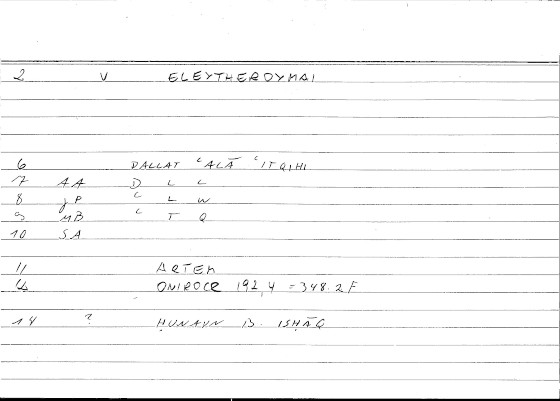 2 V ELEYTHEROYMAI
6 DALLAT ʿALĀ ʿITQIHI
7 AA D L L
8 JP ʿ L W
9 MB ʿ T Q
10 SA
11 ARTEM
ONIROCR 192,4 = 348.2 F
14 ? ḤUNAYN B. ISḤĀQ